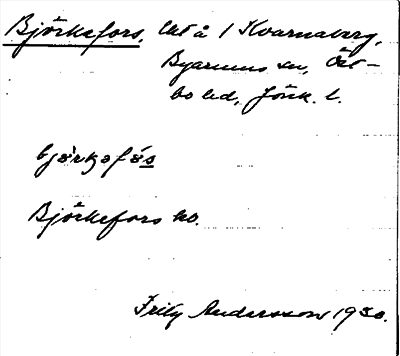 Björkefors, lht å 1 Kvarnaberg,
Byarums sn, Öst-
bo hd, Jönk. l.
bjørkəfós
Björkefors ko.
Fritz Andersson 1930.